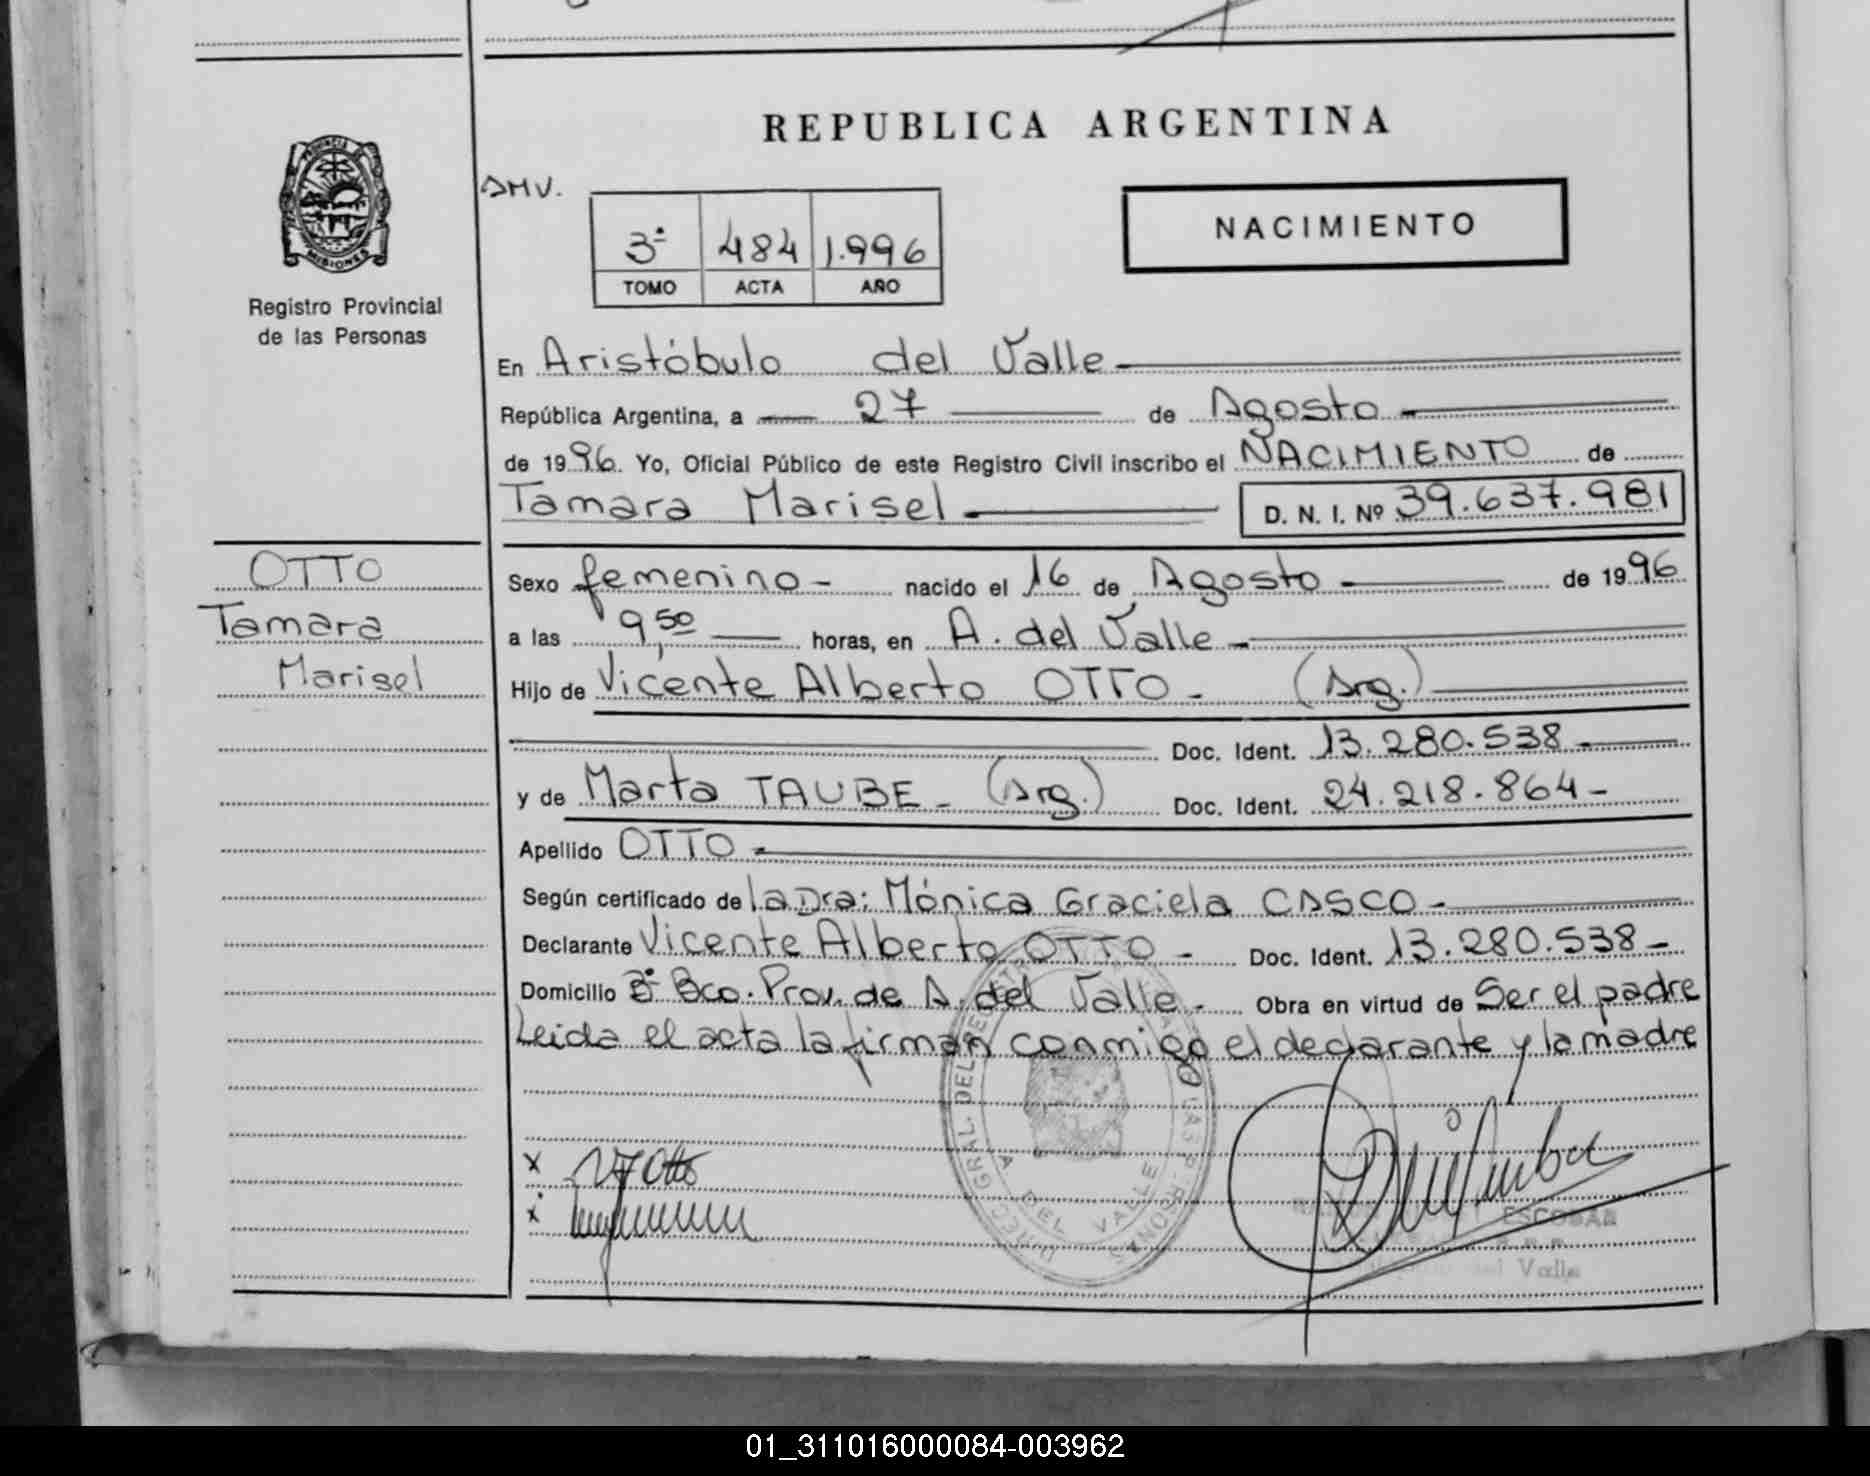 REPUBLICA ARGENTINA
PROVINCIA DE
MISIONES
Registro Provincial
de las Personas
AMV.
3º 484 1.996
TOMO ACTA AÑO
NACIMIENTO
En Aristóbulo del Valle
República Argentina, a 27 de Agosto
de 1996. Yo, Oficial Público de este Registro Civil inscribo el NACIMIENTO de
Tamara Marisel D. N. I. Nº 39.637.981
OTTO
Tamara
Marisel
Sexo femenino - nacido el 16 de Agosto de 1996
a las 9,50 horas, en A. del Valle
Hijo de Vicente Alberto OTTO - (Arg.)
Doc. Ident. 13.280.538
y de Marta TAUBE - (Arg.) Doc. Ident. 24.218.864 -
Apellido OTTO
Según certificado de la Dra: Mónica Graciela CASCO -
Declarante Vicente Alberto OTTO - Doc. Ident. 13.280.538 -
Domicilio Bº Bco. Prov. de A. del Valle - Obra en virtud de Ser el padre
Leida el acta la firman conmigo el declarante y la madre
x Otto
x
A DEL VALLE
ESCOBAR
del Valle
01_311016000084-003962